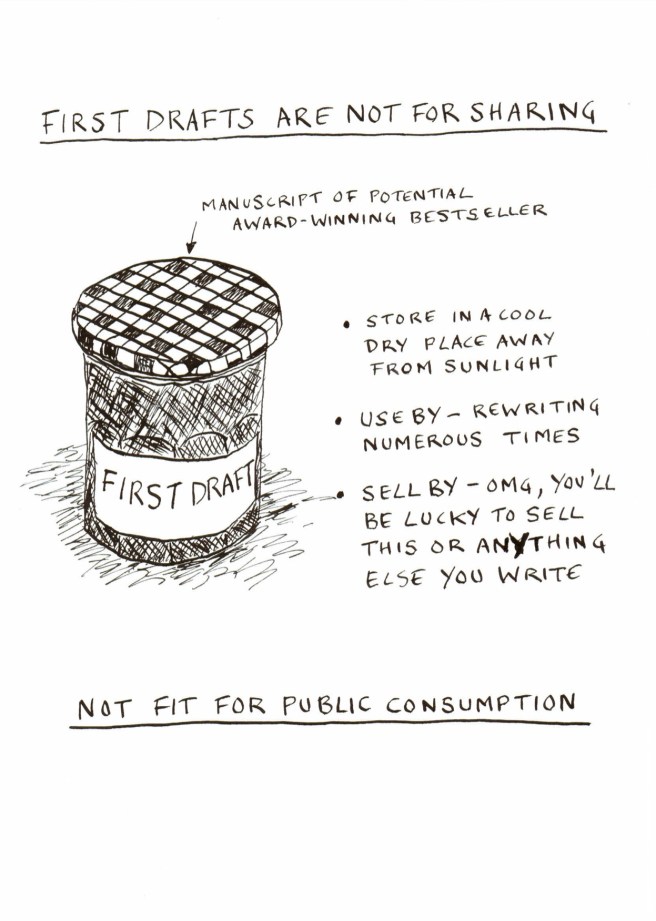 FIRST DRAFTS ARE NOT FOR SHARING
MANUSCRIPT OF POTENTIAL
AWARD-WINNING BESTSELLER
FIRST DRAFT
• STORE IN A COOL
DRY PLACE AWAY
FROM SUNLIGHT
• USE BY – REWRITING
NUMEROUS TIMES
• SELL BY – OMG, YOU'LL
BE LUCKY TO SELL
THIS OR ANYTHING
ELSE YOU WRITE
NOT FIT FOR PUBLIC CONSUMPTION